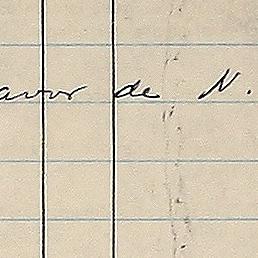 avor de N.